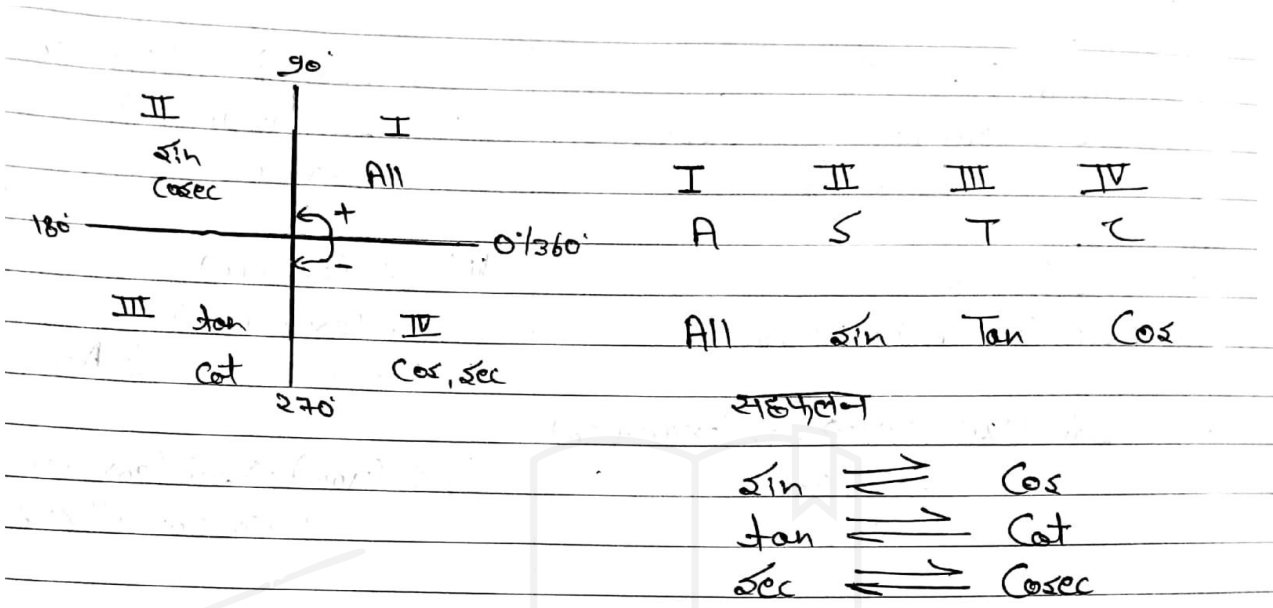 90°
II I
sin All
Cosec
+
180° 0°/360°
-
III tan IV
Cot Cos, Sec
270°
I II III IV
A S T C
All Sin Tan Cos
सहफलन
Sin ⇌ Cos
tan ⇌ Cot
Sec ⇌ Cosec